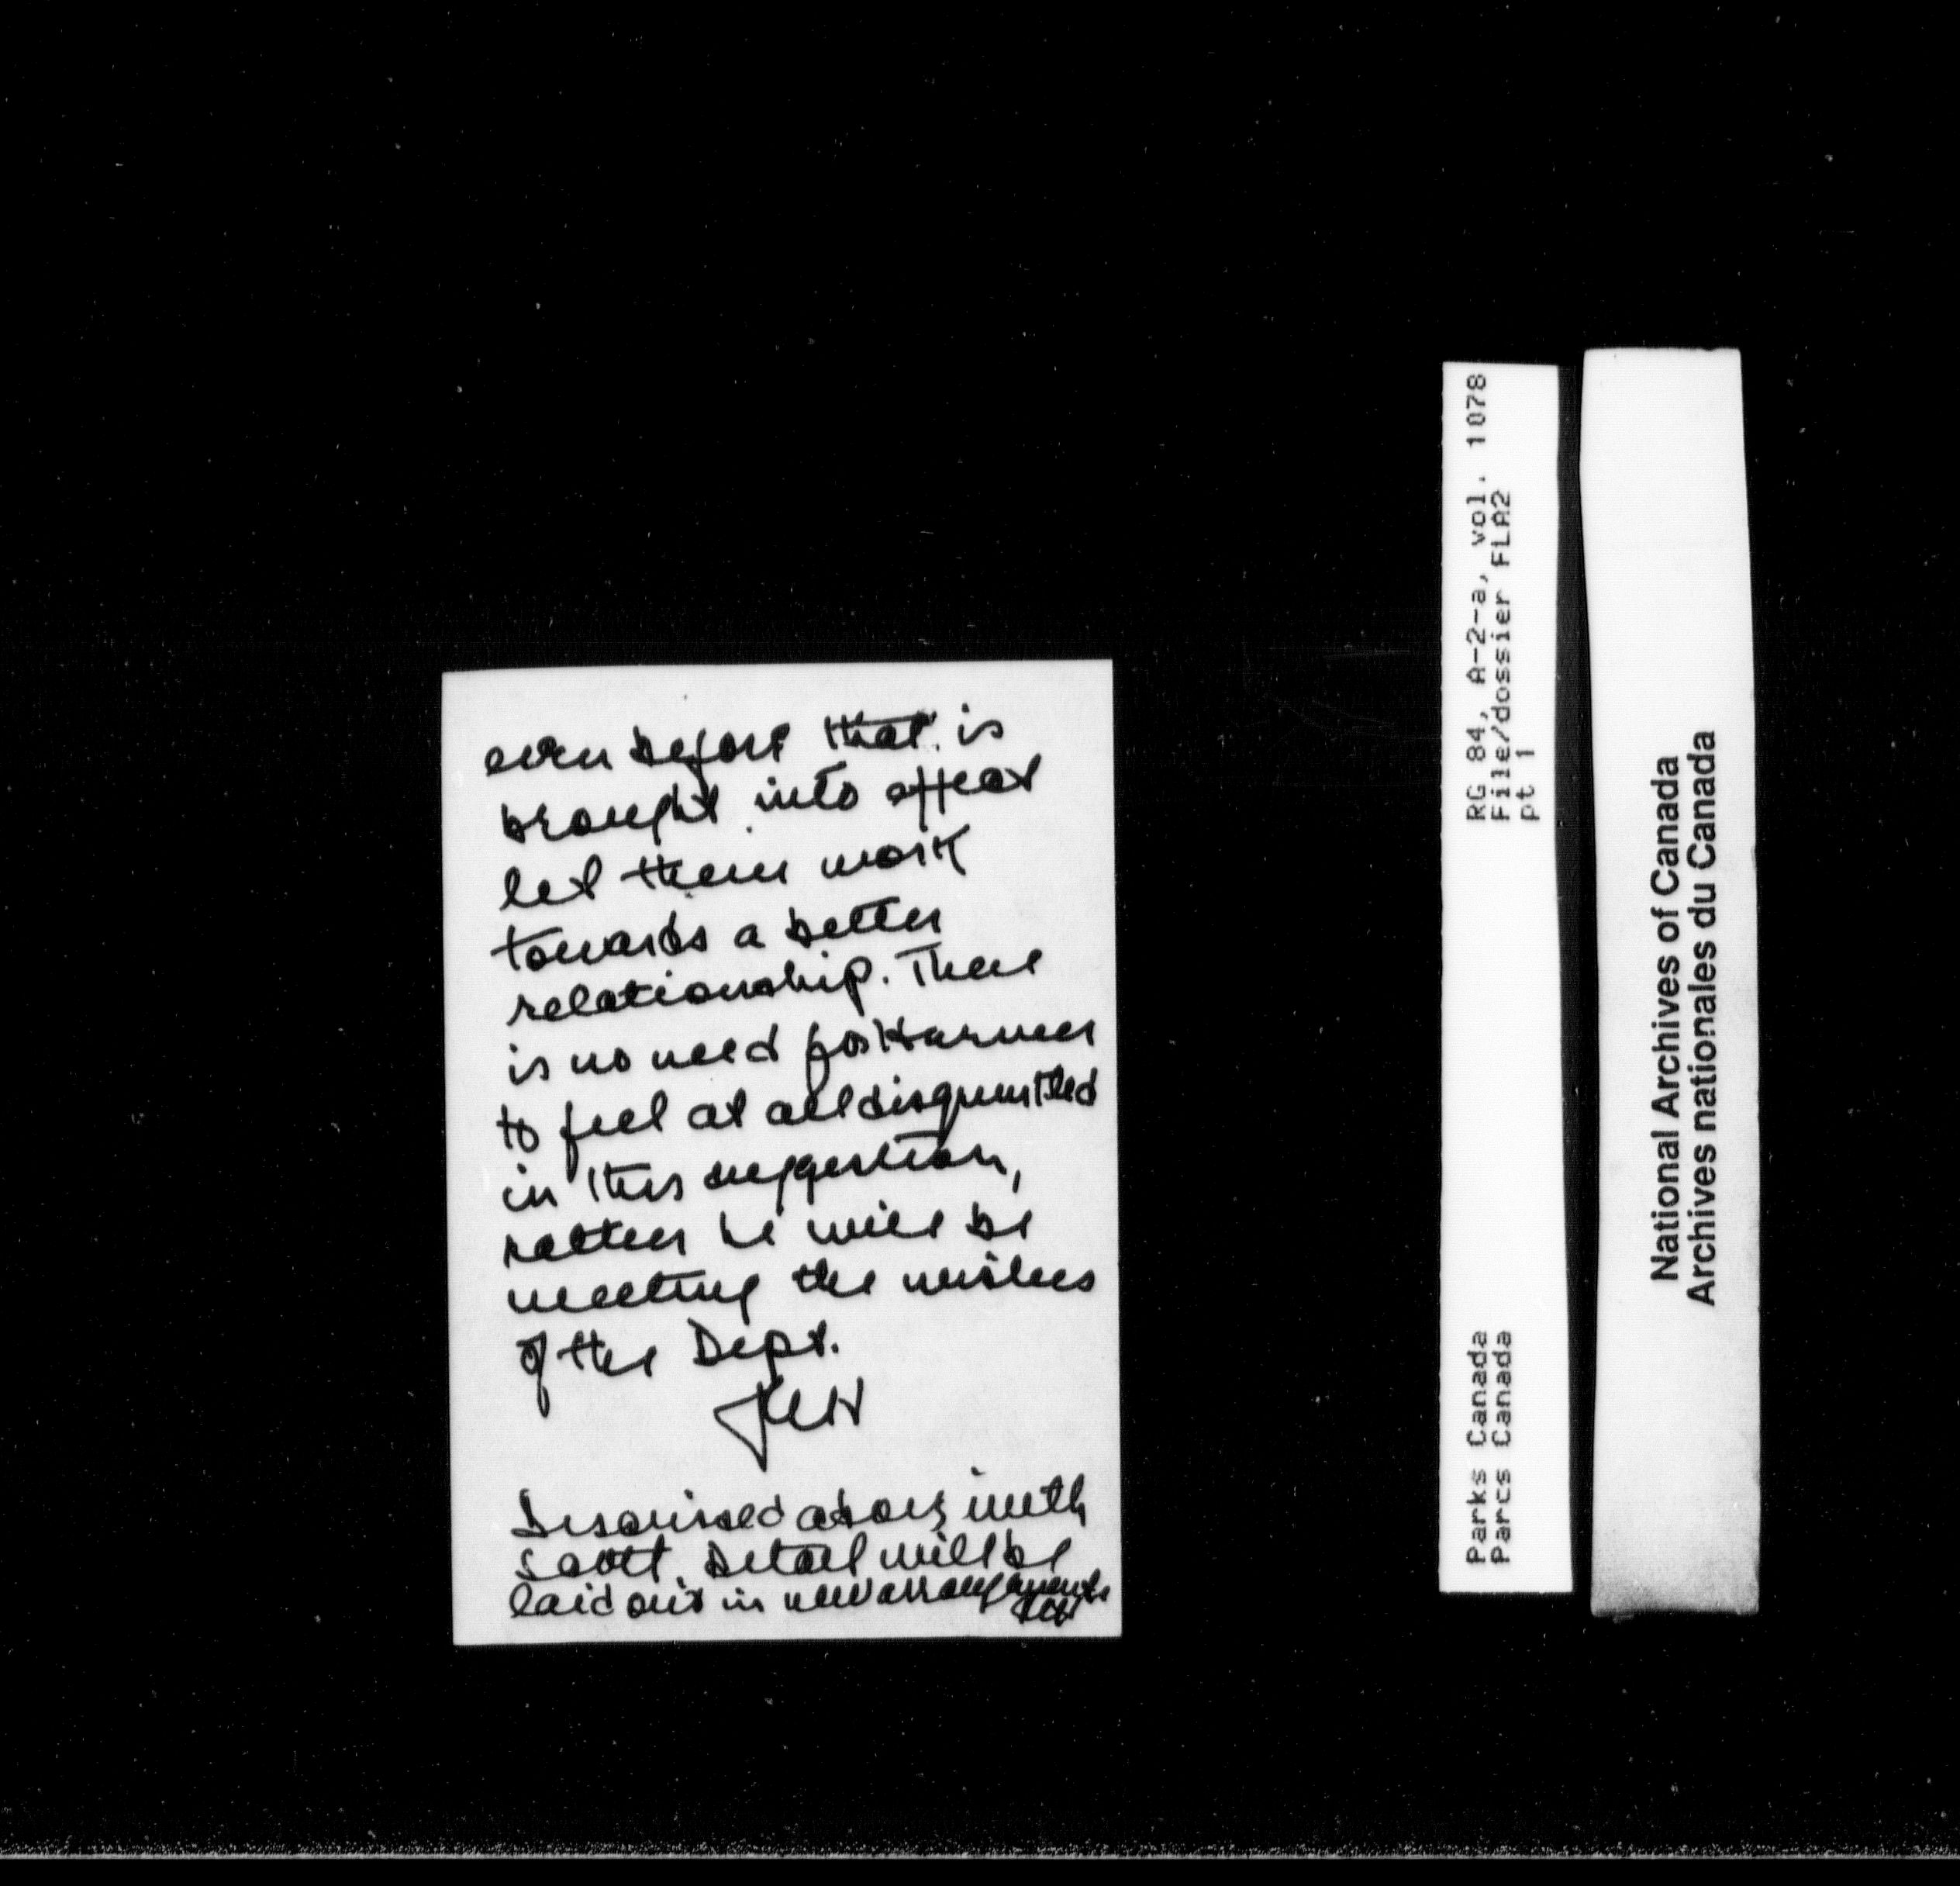 even before that is
brought into effect
let them work
towards a better
relationship. There
is no need for
to feel at all disgruntled
in this suggestion,
rather he will be
meeting the wishes
of the Dept.
Discussed above with
Scott. Detail will be
laid out in new arrangements
RG 84, A-2-a, vol. 1078
File/dossier FLA2
pt 1
Parks Canada
Parcs Canada
National Archives of Canada
Archives nationales du Canada